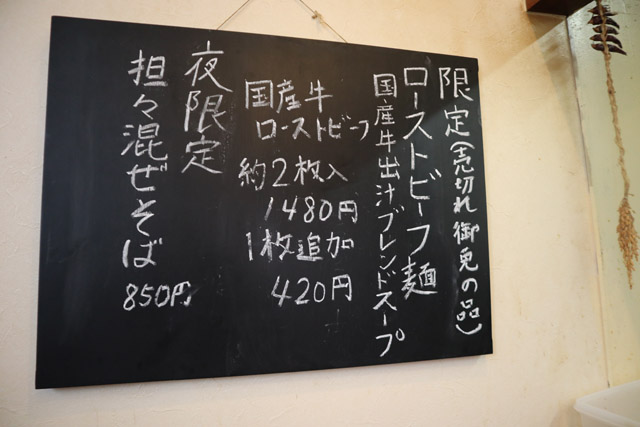 限定(売切れ御免の品)
ローストビーフ麺
国産牛出汁ブレンドスープ
国産牛
ローストビーフ
約2枚入
1480円
1枚追加
420円
夜限定
担々混ぜそば
850円